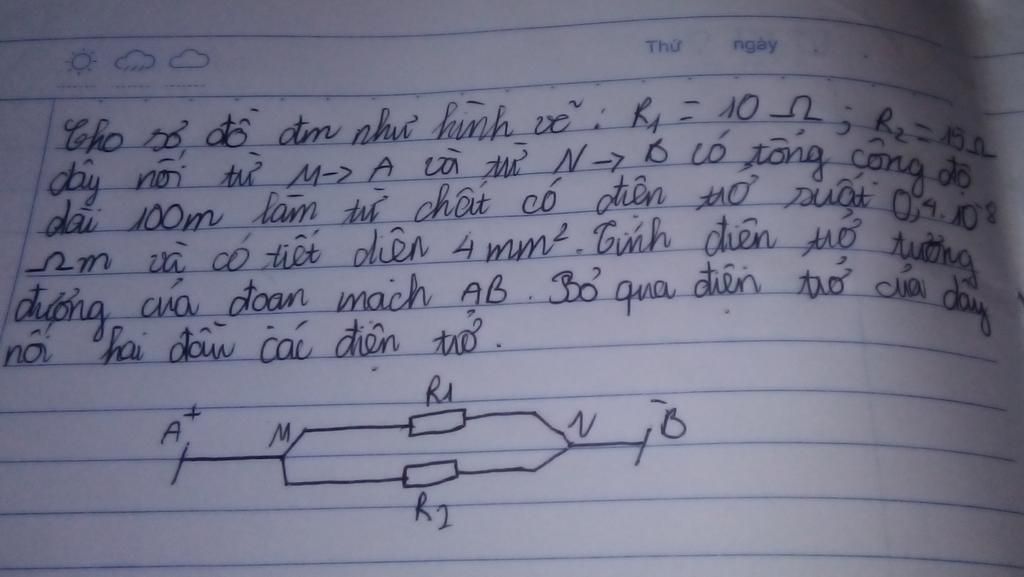 Thứ ngày
Cho sơ đồ đm như hình vẽ: R1 = 10 Ω; R2 = 15Ω
dây nối từ M→ A và từ N→ B có tổng cộng độ
dài 100m làm từ chất có điện trở suất 0,4.10⁻⁸
Ωm và có tiết diện 4 mm². Tính điện trở tương
đương của đoạn mạch AB. Bỏ qua điện trở của dây
nối hai đầu các điện trở.
R1
A + M N - B
R2